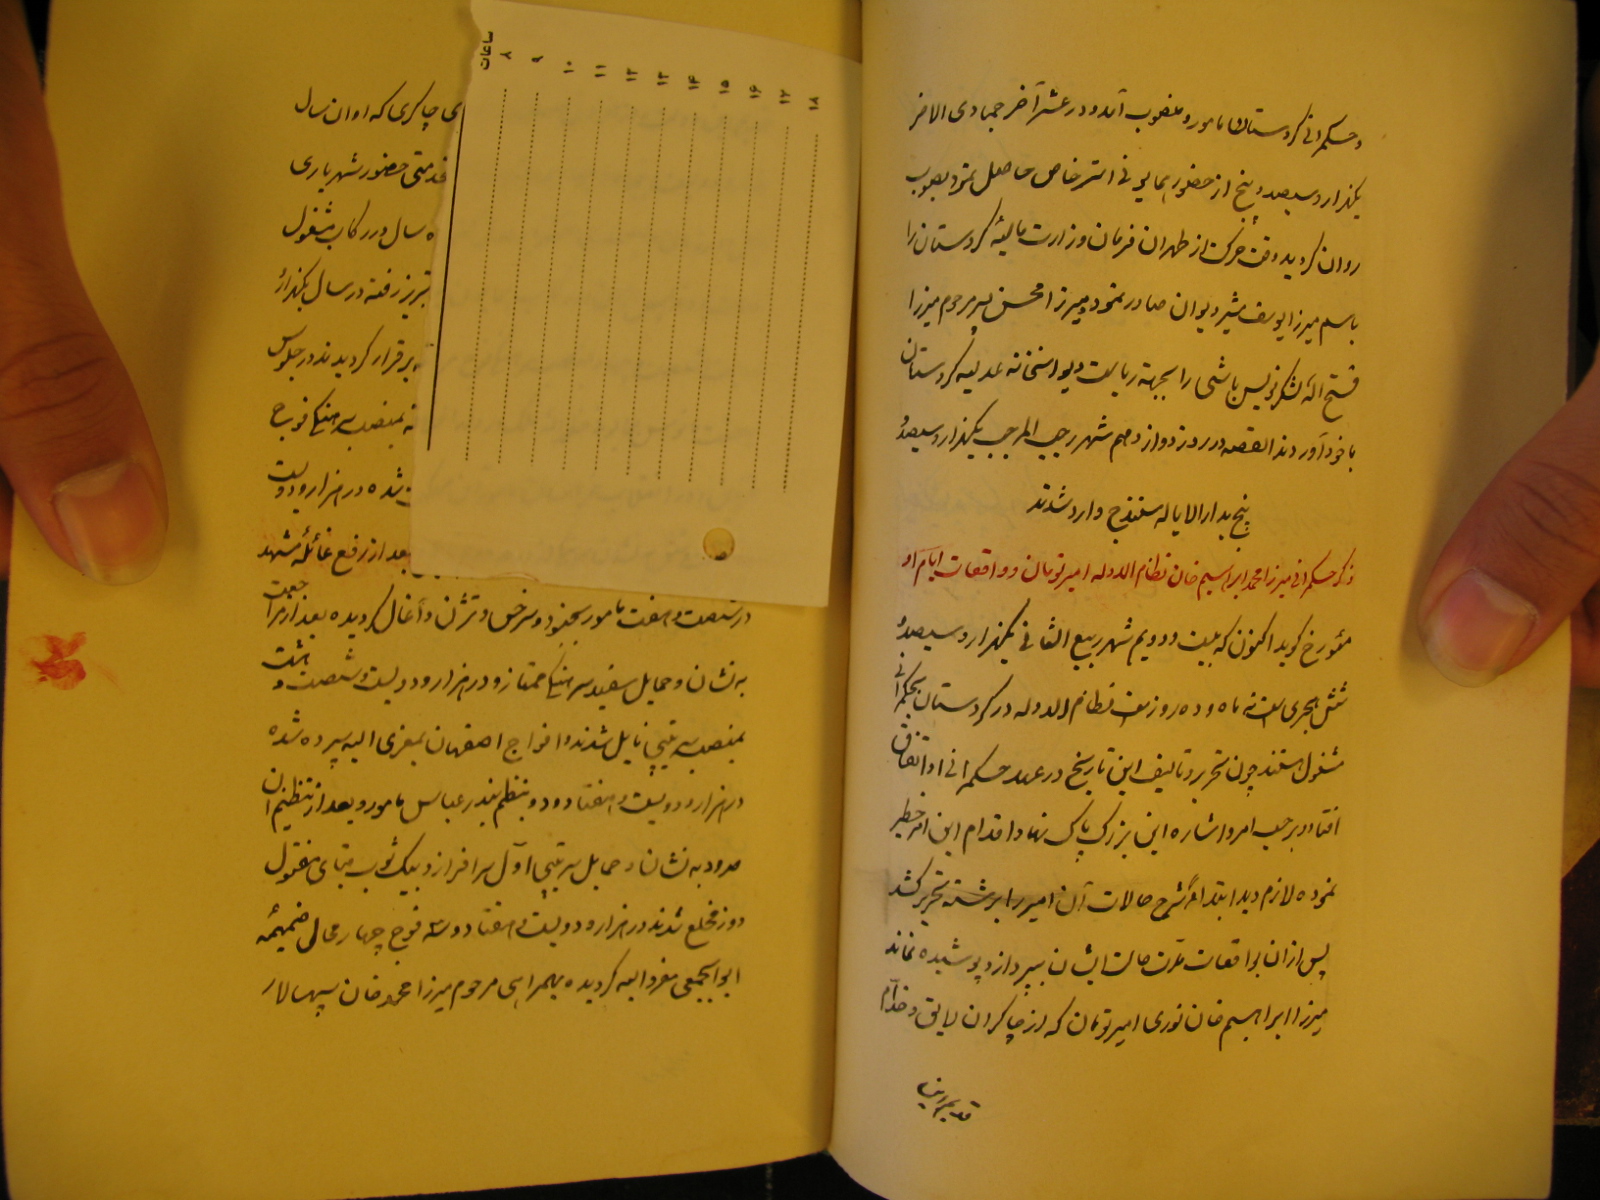 و حکمرانی کردستان مامور و منصوب آمد و در عشر آخر جمادی الاخر
یکهزار و سیصد و پنج از حضور همایونی استرخاص حاصل نمود بصوب
روان گردید وقت حرکت از طهران فرمان وزارت مالیهٔ کردستان را
باسم میرزا یوسف مشیر دیوان صادر نمود و میرزا محسن پسر مرحوم میرزا
فتح الله لشکرنویس باشی را بجهة ریاست دیوانخانه عدلیه کردستان
با خود آوردند القصه در روز دوازدهم شهر رجب المرجب یکهزار و سیصد و
پنج بدار الایاله سنندج وارد شدند
ذکر حکمرانی میرزا محمد ابراهیم خان نظام الدوله امیر تومان و واقعات ایام او
مؤرخ گوید اکنون که بیست و دویم شهر ربیع الثانی یکهزار و سیصد و
شش هجری است نه ماه و ده روز است نظام الدوله در کردستان بحکمرانی
مشغول هستند چون تحریر و تالیف این تاریخ در عهد حکمرانی او اتفاق
افتاد و برحسب امر و اشاره این بزرگ پاک نهاد اقدام این امر خطیر
نموده لازم دید ابتدا شرح حالات آن امیر را برشته تحریر کشد
پس از ان بواقعات مدت حکومت ایشان بپردازد پوشیده نماند
میرزا ابراهیم خان نوری امیر تومان که از چاکران لایق و خدام
قدیم این
ساعات
۸
۹
۱۰
۱۱
۱۲
۱۳
۱۴
۱۵
۱۶
۱۷
۱۸
چاکری که اوان سال
خدمتی حضور شهریاری
سال در رکاب مشغول
تبریز رفته در سال یکهزار
برقرار گردیدند در جلوس
بمنصب سرهنگی فوج
شده در هزار و دویست
بعد از رفع غائله مشهد
در شصت و هفت مامور بجنورد و سرخس و تژن و آخال گردیده بعد از مراجعت
به نشان و حمایل سفید سرهنگی ممتاز و در هزار و دویست و شصت و هشت
بمنصب سرتیپی نایل شدند و افواج اصفهان بمعزی الیه سپرده شده
در هزار و دویست و هفتاد و دو بنظم بندر عباس مامور و بعد از تنظیم ان
حدود به نشان و حمایل سرتیپی اول سرافراز و بیک ثوب قبای مفتول
دوز مخلع شدند در هزار و دویست و هفتاد و سه فوج چهار محال ضمیمهٔ
ابوابجمعی معزی الیه گردیده بهمراهی مرحوم میرزا محمد خان سپهسالار